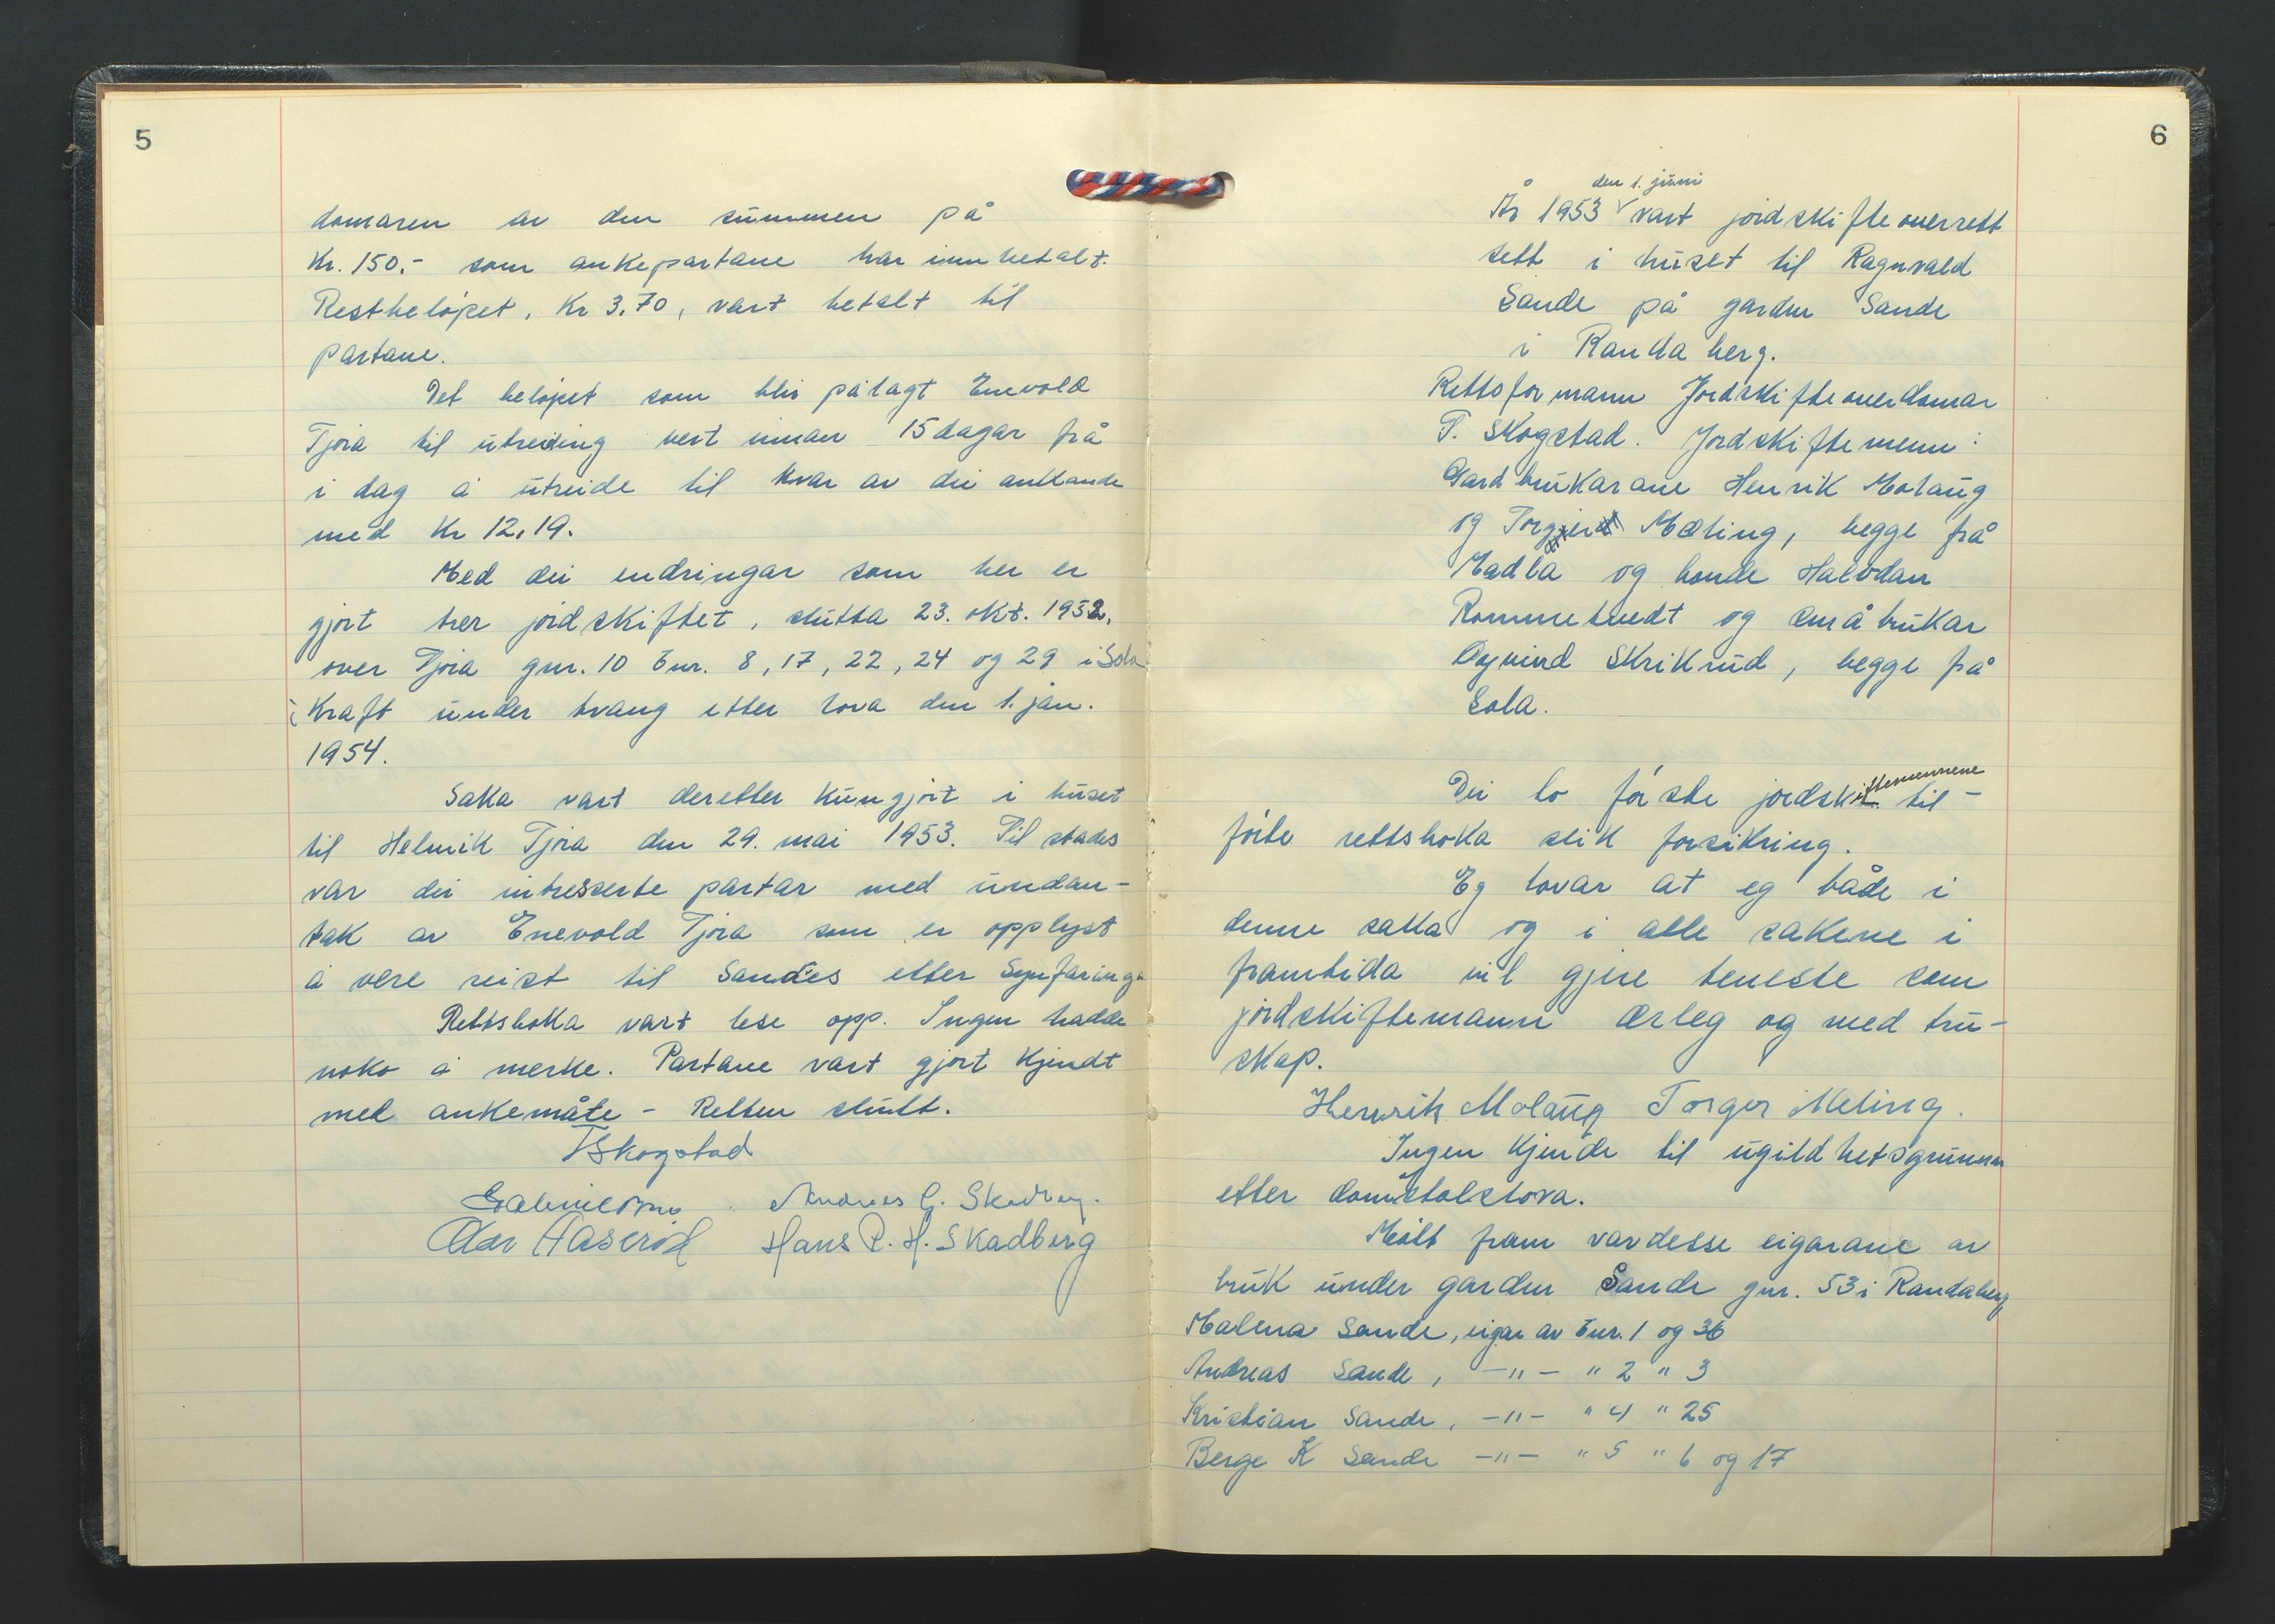 5
domaren av den summen på
Kr. 150.- som ankepartane har innbetalt.
Restbeløpet, Kr 3,70, vart betalt til
partane.
Det beløpet som blir pålagt Enevold
Tjora til utreiding vert innan 15 dagar frå
i dag å utreide til kvar av dei ankande
med Kr 12,19.
Med dei endringar som her er
gjort trer jordskiftet, slutta 23. okt. 1952,
over Tjora gnr. 10 bnr. 8, 17, 22, 24 og 29 i Sola
i kraft under tvang etter lova den 1. jan.
1954.
Saka vart deretter kungjort i huset
til Helmik Tjora den 29. mai 1953. Til stades
var dei intresserte partar med undan-
tak av Enevold Tjora som er opplyst
å vere reist til Sandes etter Synfaringa
Rettsboka vart lese opp. Ingen hadde
noko å merke. Partane vart gjort kjendt
med ankemåte - Retten slutt.
T Skogstad
Andreas G. Skadberg.
Hans R. H. Skadberg
6
den 1. juni
År 1953 vart jordskifteoverrett
sett i huset til Ragnvald
Sande på garden Sande
i Randaberg.
Rettsformann Jordskifteoverdomar
T. Skogstad. Jordskiftemenn:
Gardbrukarane Henrik Molaug
og Torger Mæling, begge frå
Madla og bonde Halvdan
Rommetvedt og småbrukar
Øyvind Skrikrud, begge frå
Sola.
Dei to første jordskiftemennene til-
førte rettsboka slik forsikring.
Eg lovar at eg både i
denne saka og i alle sakene i
framtida vil gjere teneste som
jordskiftemann ærleg og med tru-
skap.
Henrik Molaug Torger Meling.
Ingen kjende til ugildhetsgrunnar
etter domstolslova.
Møtt fram var desse eigarane av
bruk under garden Sande gnr. 53 i Randaberg
Malena Sande, eigar av bnr. 1 og 36
Andreas Sande, -"- " 2 " 3
Kristian Sande, -"- " 4 " 25
Berge K Sande -"- " 5 " 6 og 17